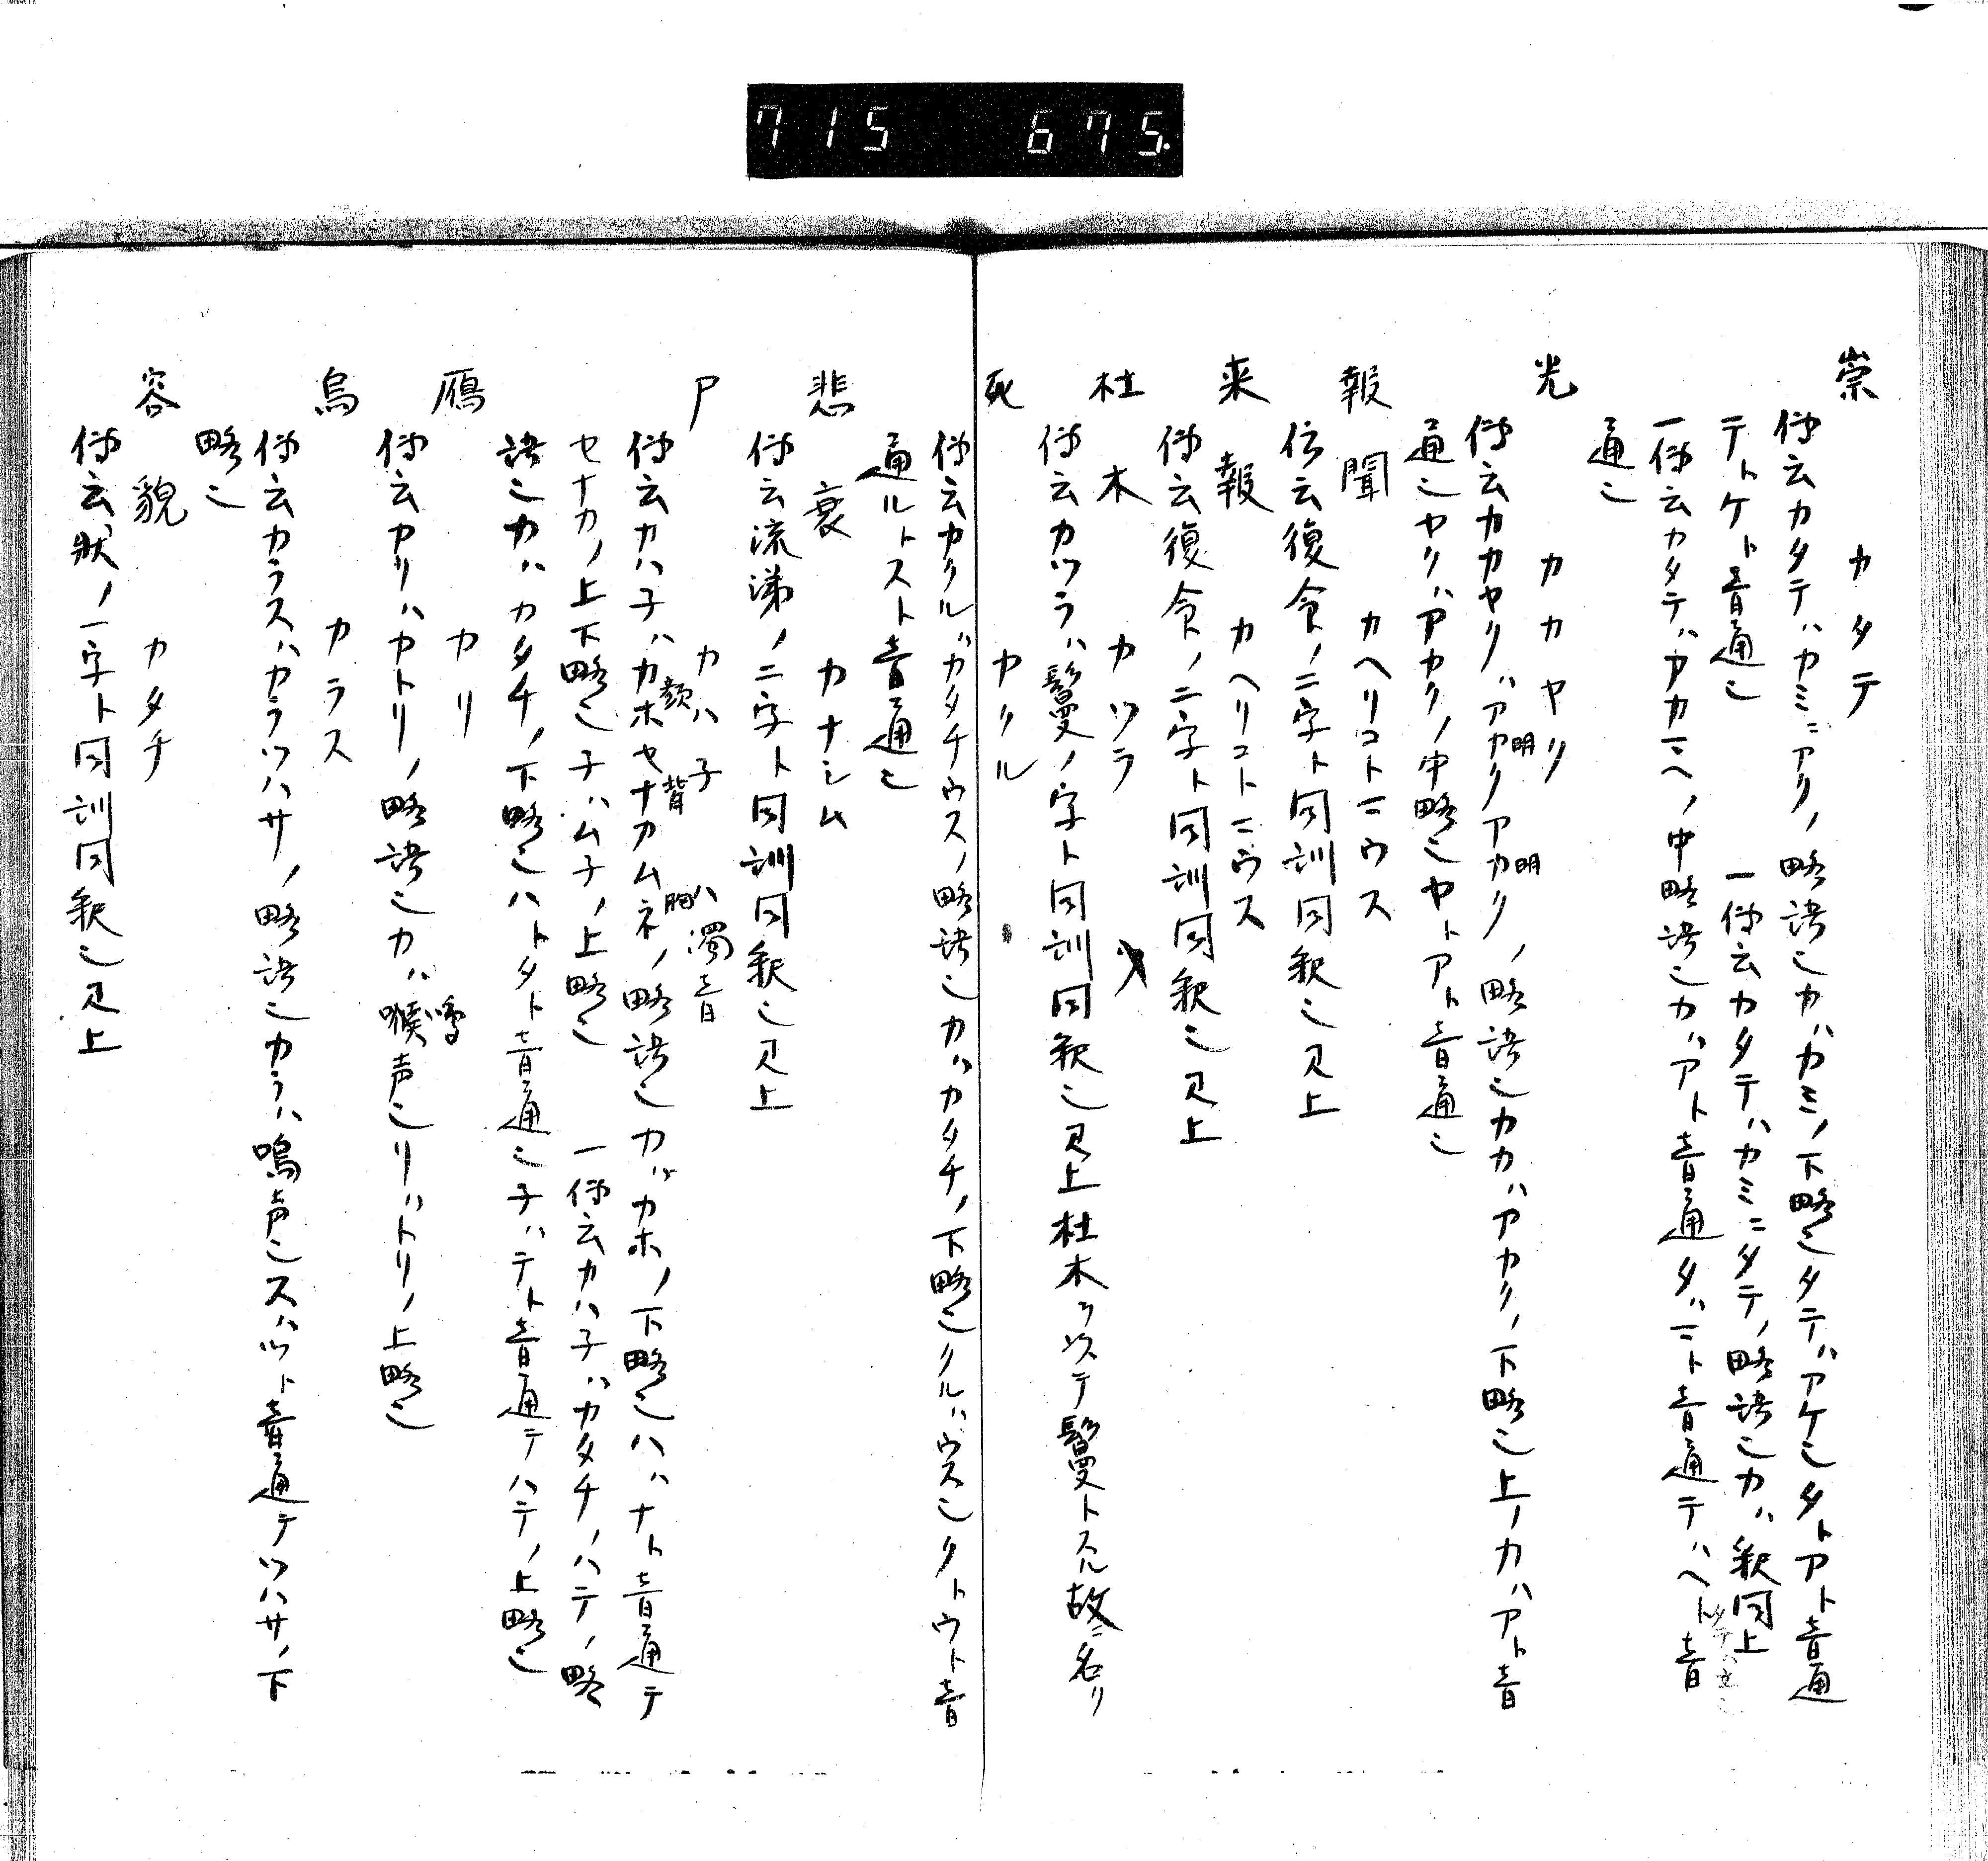 715 675.
崇 カタテ
伝云カタテハカミニアリノ略語也カハカミノ下略也タテハアケ也タトアト音通
テトケト音通也 一伝云カタテハカミニタテノ略語也カハ釈同上
一伝云カタテハアカマヘノ中略語也カハアト音通タハマト音通テハヘト音
通也
光 カカヤク
伝云カカヤクハアカクアカクノ略語也カカハアカクノ下略也上ノカハアト音
明 明
通也ヤクハアカクノ中略也ヤトアト音通也
報聞 カヘリコトマウス
伝云復命ノ二字ト同訓同釈也見上
来報 カヘリコトマウス
伝云復命ノ二字ト同訓同釈也見上
杜木 カツラ
伝云カツラハ鬘ノ字ト同訓同釈也見上杜木ヲ以テ鬘トスル故ニ名リ
死 カクル
伝云カクルハカタチウスノ略語也カハカタチノ下略也クルハウス也クトウト音
通ルトスト音通也
悲哀 カナシム
伝云流涕ノ二字ト同訓同釈也見上
尸 カハ子 ハ濁音
伝云カハ子ハカホセナカムネノ略語也カハカホノ下略也ハハナト音通テ
顔 背 胸
セナカノ上下略也子ハムネノ上略也 一伝云カハ子ハカタチノハテノ略
語也カハカタチノ下略也ハトタト音通也子ハテト音通テハテノ上略也
鴈 カリ
伝云カリハカトリノ略語也カハ喉声也リハトリノ上略也
烏 カラス
伝云カラスハカラツハサノ略語也カラハ鳴声也スハツト音通テツハサノ下
略也
容貌 カタチ
伝云状ノ一字ト同訓同釈也見上